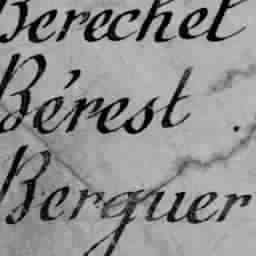 Berechet
Bérest
Berguer